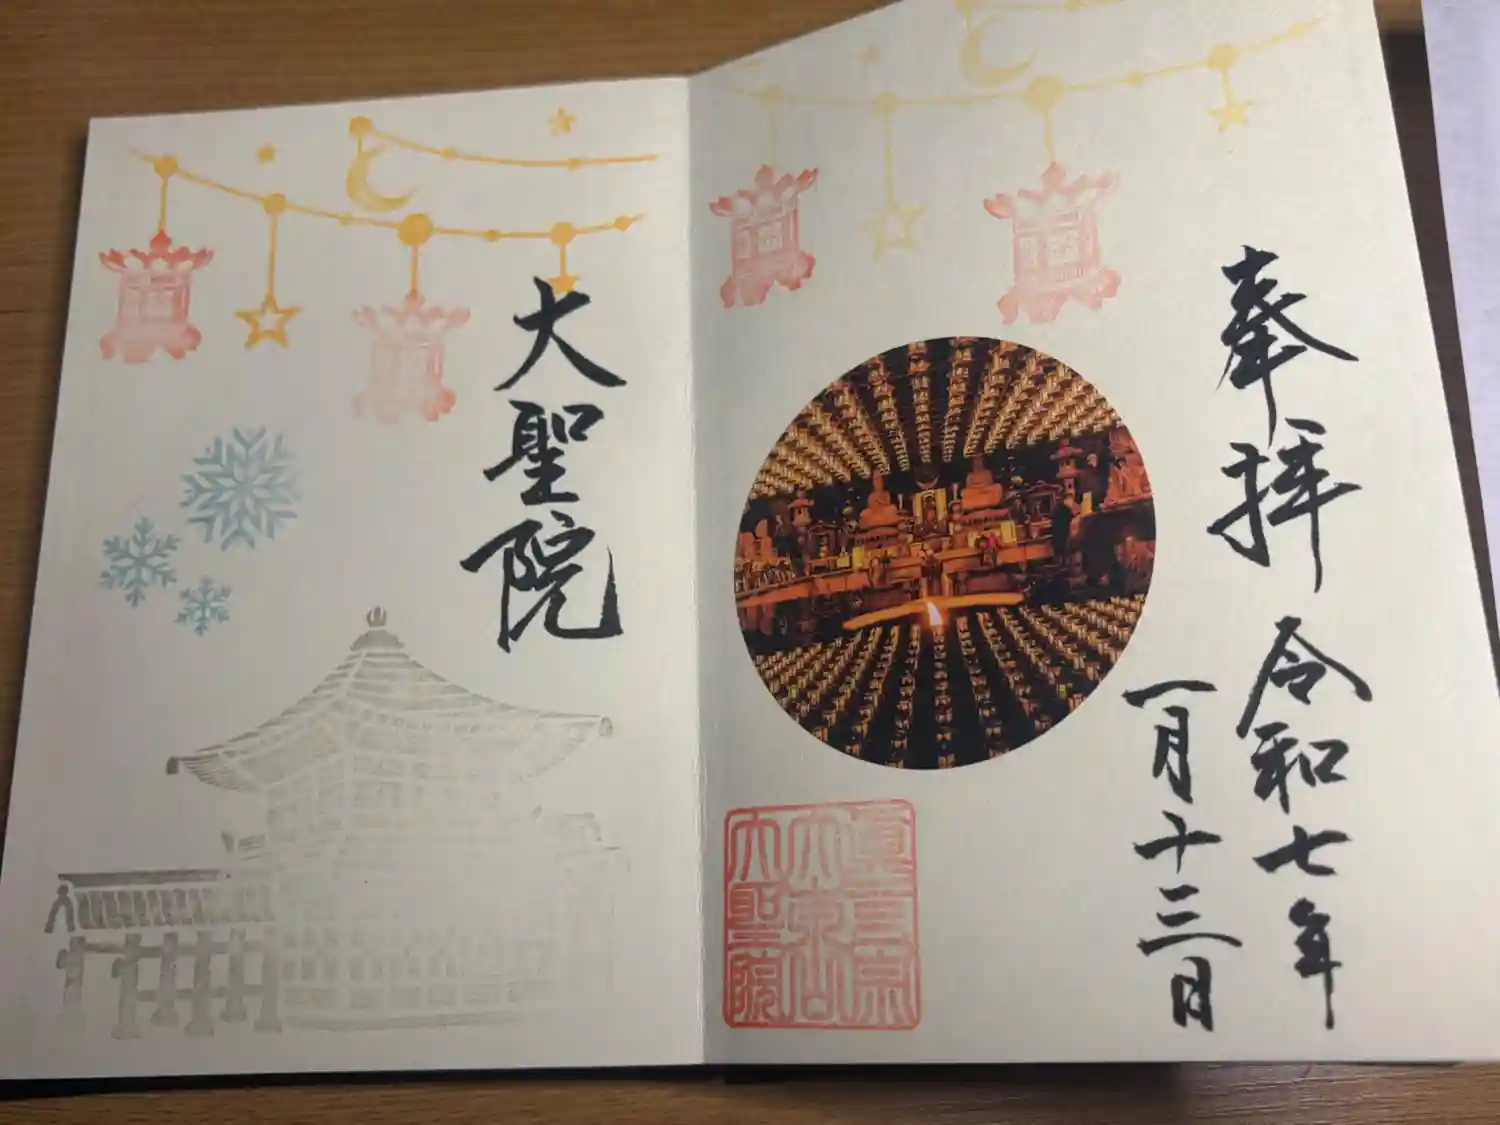 奉拝
令和七年
一月十三日
大聖院
真言宗
大本山
大聖院